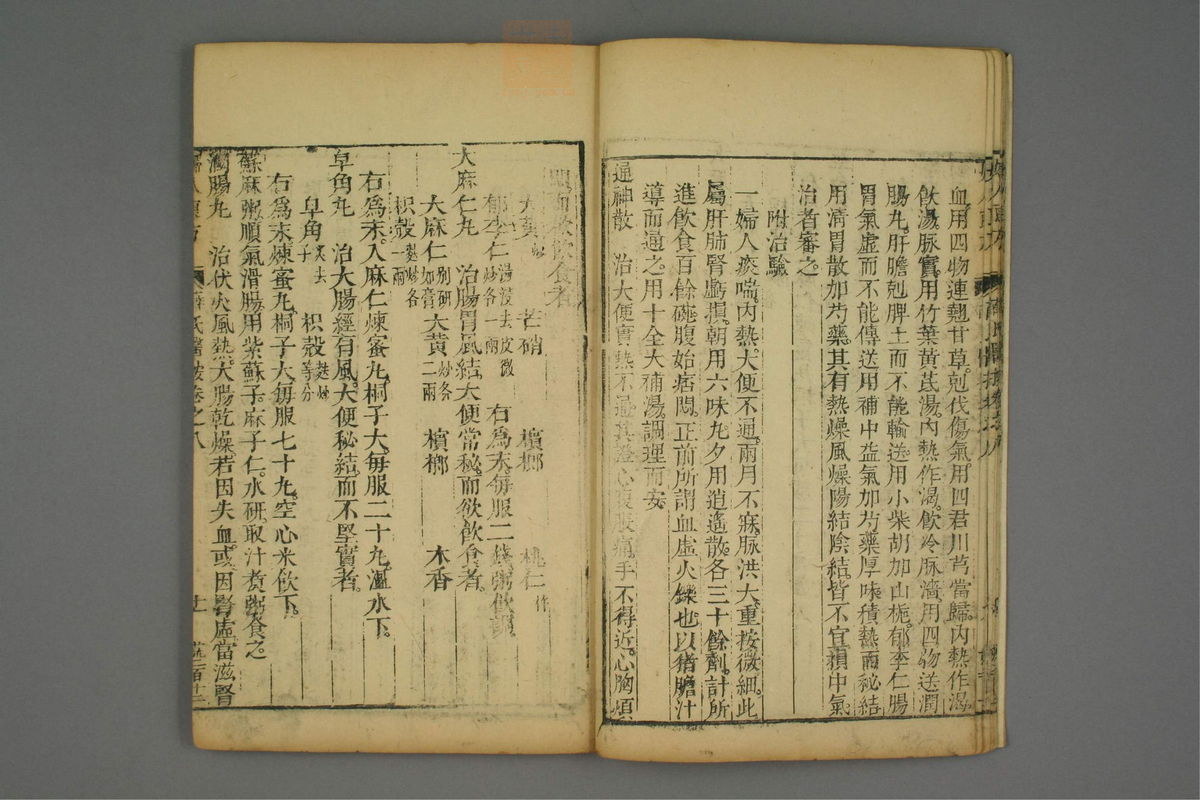 血用四物連翹甘草。剋伐傷氣。用四君川芎當歸。內熱作渴。
飲湯。脉實。用竹葉黃芪湯。內熱作渴。飲冷脉濇。用四物送潤
腸丸。肝膽剋脾土而不能輸送。用小柴胡加山梔。郁李仁腸
胃氣虛而不能傳送。用補中益氣加芍藥厚味。積熱而秘結
用清胃散加芍藥。其有熱燥風燥陽結陰結。皆不宜損中氣。
治者審之。
附治驗
一婦人痰喘內熱。大便不通。兩月不寐。脉洪大。重按微細。此
屬肝肺腎虧損。朝用六味丸。夕用逍遙散。各三十餘劑。計所
進飲食百餘碗。腹始痞悶。正前所謂血虛火鑠也。以猪膽汁
導而通之。用十全大補湯。調理而安。
通神散 治大便實熱不通。其證心腹脹痛。手不得近。心胸煩
飲食者
大黃 芒硝 檳榔 桃仁
郁李仁 湯浸去皮微炒各一兩 右爲末。每服二錢。粥飲調
大麻仁丸 治腸胃風結。大便當秘。而欲飲食者。
大麻仁 別研如膏 大黃 炒各二兩 檳榔 木香
枳殼 麩炒各一兩
右爲末。入麻仁煉蜜丸。桐子大。每服二十丸。溫水下。
皁角丸 治大腸經有風。大便秘結。而不堅實者。
皁角 炙去子 枳殼 麩炒等分
右爲末煉蜜丸。桐子大。每服七十丸。空心米飲下。
蘇麻粥順氣滑腸。用紫蘇子。麻子仁。水研取汁。煮粥食之。
潤腸丸 治伏火風熱。大腸乾燥。若因失血。或因腎虛。當滋腎